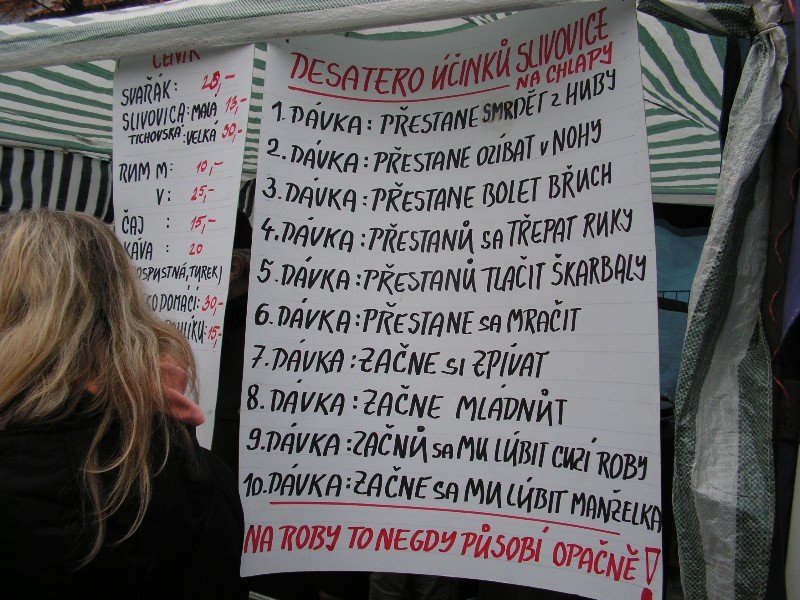 CENÍK
SVAŘÁK: 25,-
SLIVOVICA: MALÁ 15,-
TICHOVSKÁ: VELKÁ 30,-
RUM M: 10,-
V: 25,-
ČAJ : 15,-
KÁVA : 20
TUREK)
DOMÁCÍ: 30,-
15,-
DESATERO ÚČINKŮ SLIVOVICE
NA CHLAPY
1. DÁVKA: PŘESTANE SMRDĚT z HUBY
2. DÁVKA: PŘESTANE OZÍBAT v NOHY
3. DÁVKA: PŘESTANE BOLET BŘUCH
4. DÁVKA: PŘESTANŮ sa TŘEPAT RUKY
5. DÁVKA: PŘESTANŮ TLAČIT ŠKARBALY
6. DÁVKA: PŘESTANE sa MRAČIT
7. DÁVKA: ZAČNE si ZPÍVAT
8. DÁVKA: ZAČNE MLÁDNŮT
9. DÁVKA: ZAČNŮ sa MU LÚBIT CUZÍ ROBY
10. DÁVKA: ZAČNE sa MU LÚBIT MANŽELKA
NA ROBY TO NEGDY PŮSOBÍ OPAČNĚ!